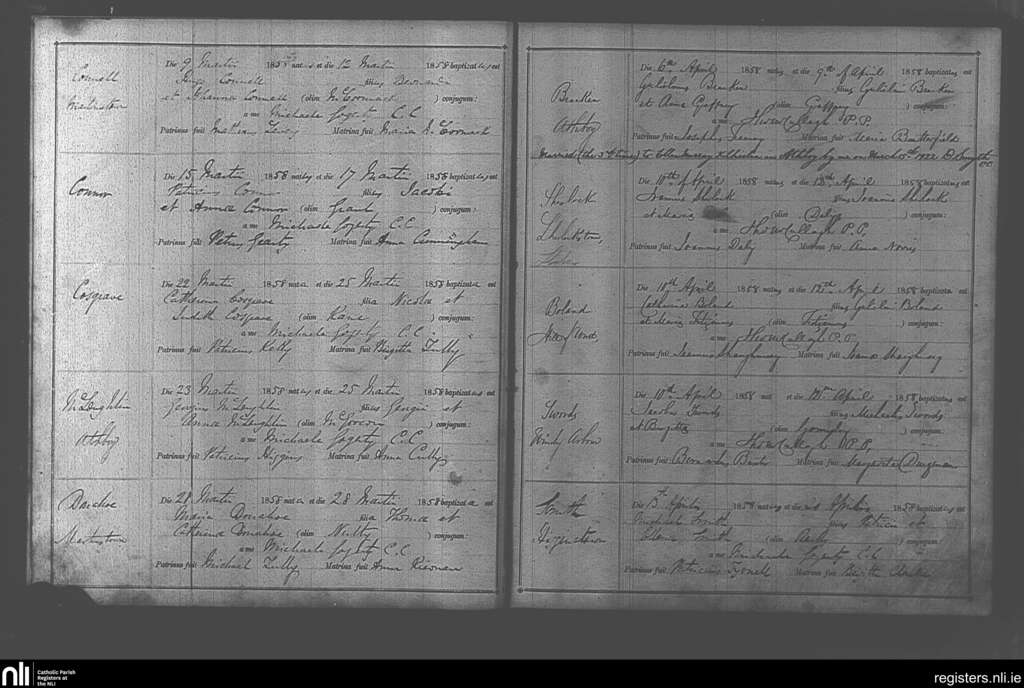 Connell
Martinstown
Die 9 Martii 1858 natus et die 12 Martii 1858 baptizatus est
Connell filius Bernardi
et Connell (olim McCormack) conjugum:
a me Michaele Fogarty C.C.
Patrinus fuit Matrina fuit Maria McCormack
Connor
Die 15 Martii 1858 natus et die 17 Martii 1858 baptizatus est
Patricius Connor filius Jacobi
et Anna Connor (olim Grant) conjugum:
a me Michaele Fogarty C.C.
Patrinus fuit Petrus Geraty Matrina fuit Anna Cunningham
Cosgrave
Die 22 Martii 1858 nata et die 25 Martii 1858 baptizata est
Catherina Cosgrave filia Nicolai et
Judith Cosgrave (olim Kane) conjugum:
a me Michaele Fogarty C.C.
Patrinus fuit Patricius Kelly Matrina fuit Brigitta Tully
McLoughlin
Athboy
Die 23 Martii 1858 natus et die 25 Martii 1858 baptizatus est
Georgius McLoughlin filius Georgii et
Anna McLoughlin (olim McGovern) conjugum:
a me Michaele Fogarty C.C.
Patrinus fuit Patricius Higgins Matrina fuit Anna Cully
Donohoe
Martinstown
Die 28 Martii 1858 nata et die 28 Martii 1858 baptizata est
Maria Donohoe filia Thomae et
Catherina Donohoe (olim Nulty) conjugum:
a me Michaele Fogarty C.C.
Patrinus fuit Michael Tully Matrina fuit Anna Kiernan
Bracken
Athboy
Die 6th April 1858 natus et die 9th of April 1858 baptizatus est
Gulielmus Bracken filius Gulielmi Bracken
et Anna Gaffney (olim Gaffney) conjugum:
a me Thos McCullagh P.P.
Patrinus fuit Josephus Matrina fuit Maria Butterfield
Married (the time) to Ellen Murray Athboy by me on March 5th 1922 P. Smyth CC
Sherlock
Die 10th of April 1858 natus et die 12th April 1858 baptizatus est
Joannes Sherlock filius Joannis Sherlock
et Maria (olim Daly) conjugum:
a me Thos McCullagh P.P.
Patrinus fuit Joannes Daly Matrina fuit Anna Norris
Boland
Die 10th April 1858 natus et die 12th April 1858 baptizatus est
Catherina Boland filius Gulielmi Boland
et Maria Fitzsimons (olim Fitzsimons) conjugum:
a me Thos McCullagh P.P.
Patrinus fuit Joannes Shaughnessy Matrina fuit
Swords
Windy Arbour
Die 10th April 1858 nat et die 12th April 1858 baptizatus est
Jacobus Swords filius Michaelis Swords
et Brigitta (olim Gormley) conjugum:
a me Thos McCullagh P.P.
Patrinus fuit Bernardus Matrina fuit Margarita
Smith
Die 13th Aprilis 1858 natus et die Aprilis 1858 baptizatus est
Michael Smith filius Patricii et
Elena Smith (olim) conjugum:
a me Michaele Fogarty C.C.
Patrinus fuit Patricius Tyrrell Matrina fuit
nli
Catholic Parish
Registers at
the NLI
registers.nli.ie